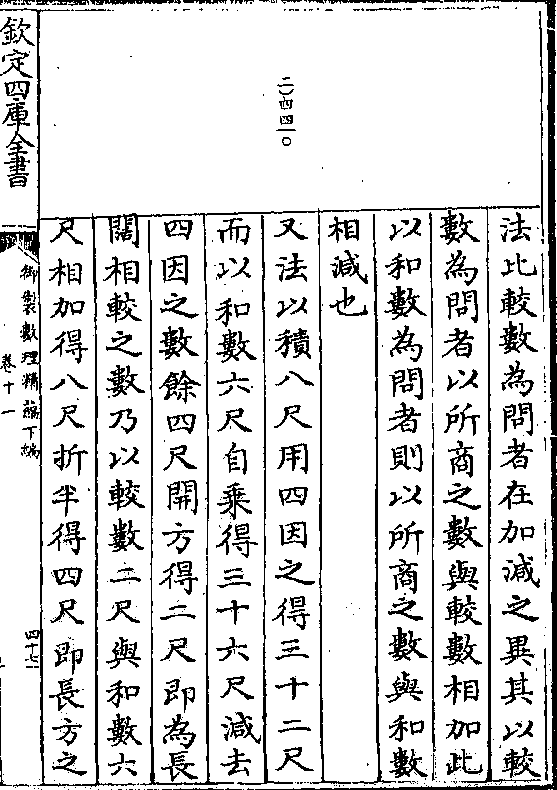 法比較數為問者在加減之異其以較
數為問者以所商之數與較數相加此
以和數為問者則以所商之數與和數
相減也
又法以積八尺用四因之得三十二尺
而以和數六尺自乘得三十六尺減去
四因之數餘四尺開方得二尺即為長
闊相較之數乃以較數二尺與和數六
尺相加得八尺折半得四尺即長方之
二〇四四一〇
欽定四庫全書
御製數理精藴下編
卷十一